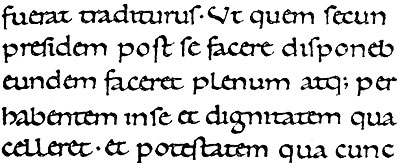 fuerat traditurus. Ut quem secun
presidem post se facere disponeb
eundem faceret plenum atq; per
habentem in se et dignitatem qua
celleret. et potestatem qua cunc